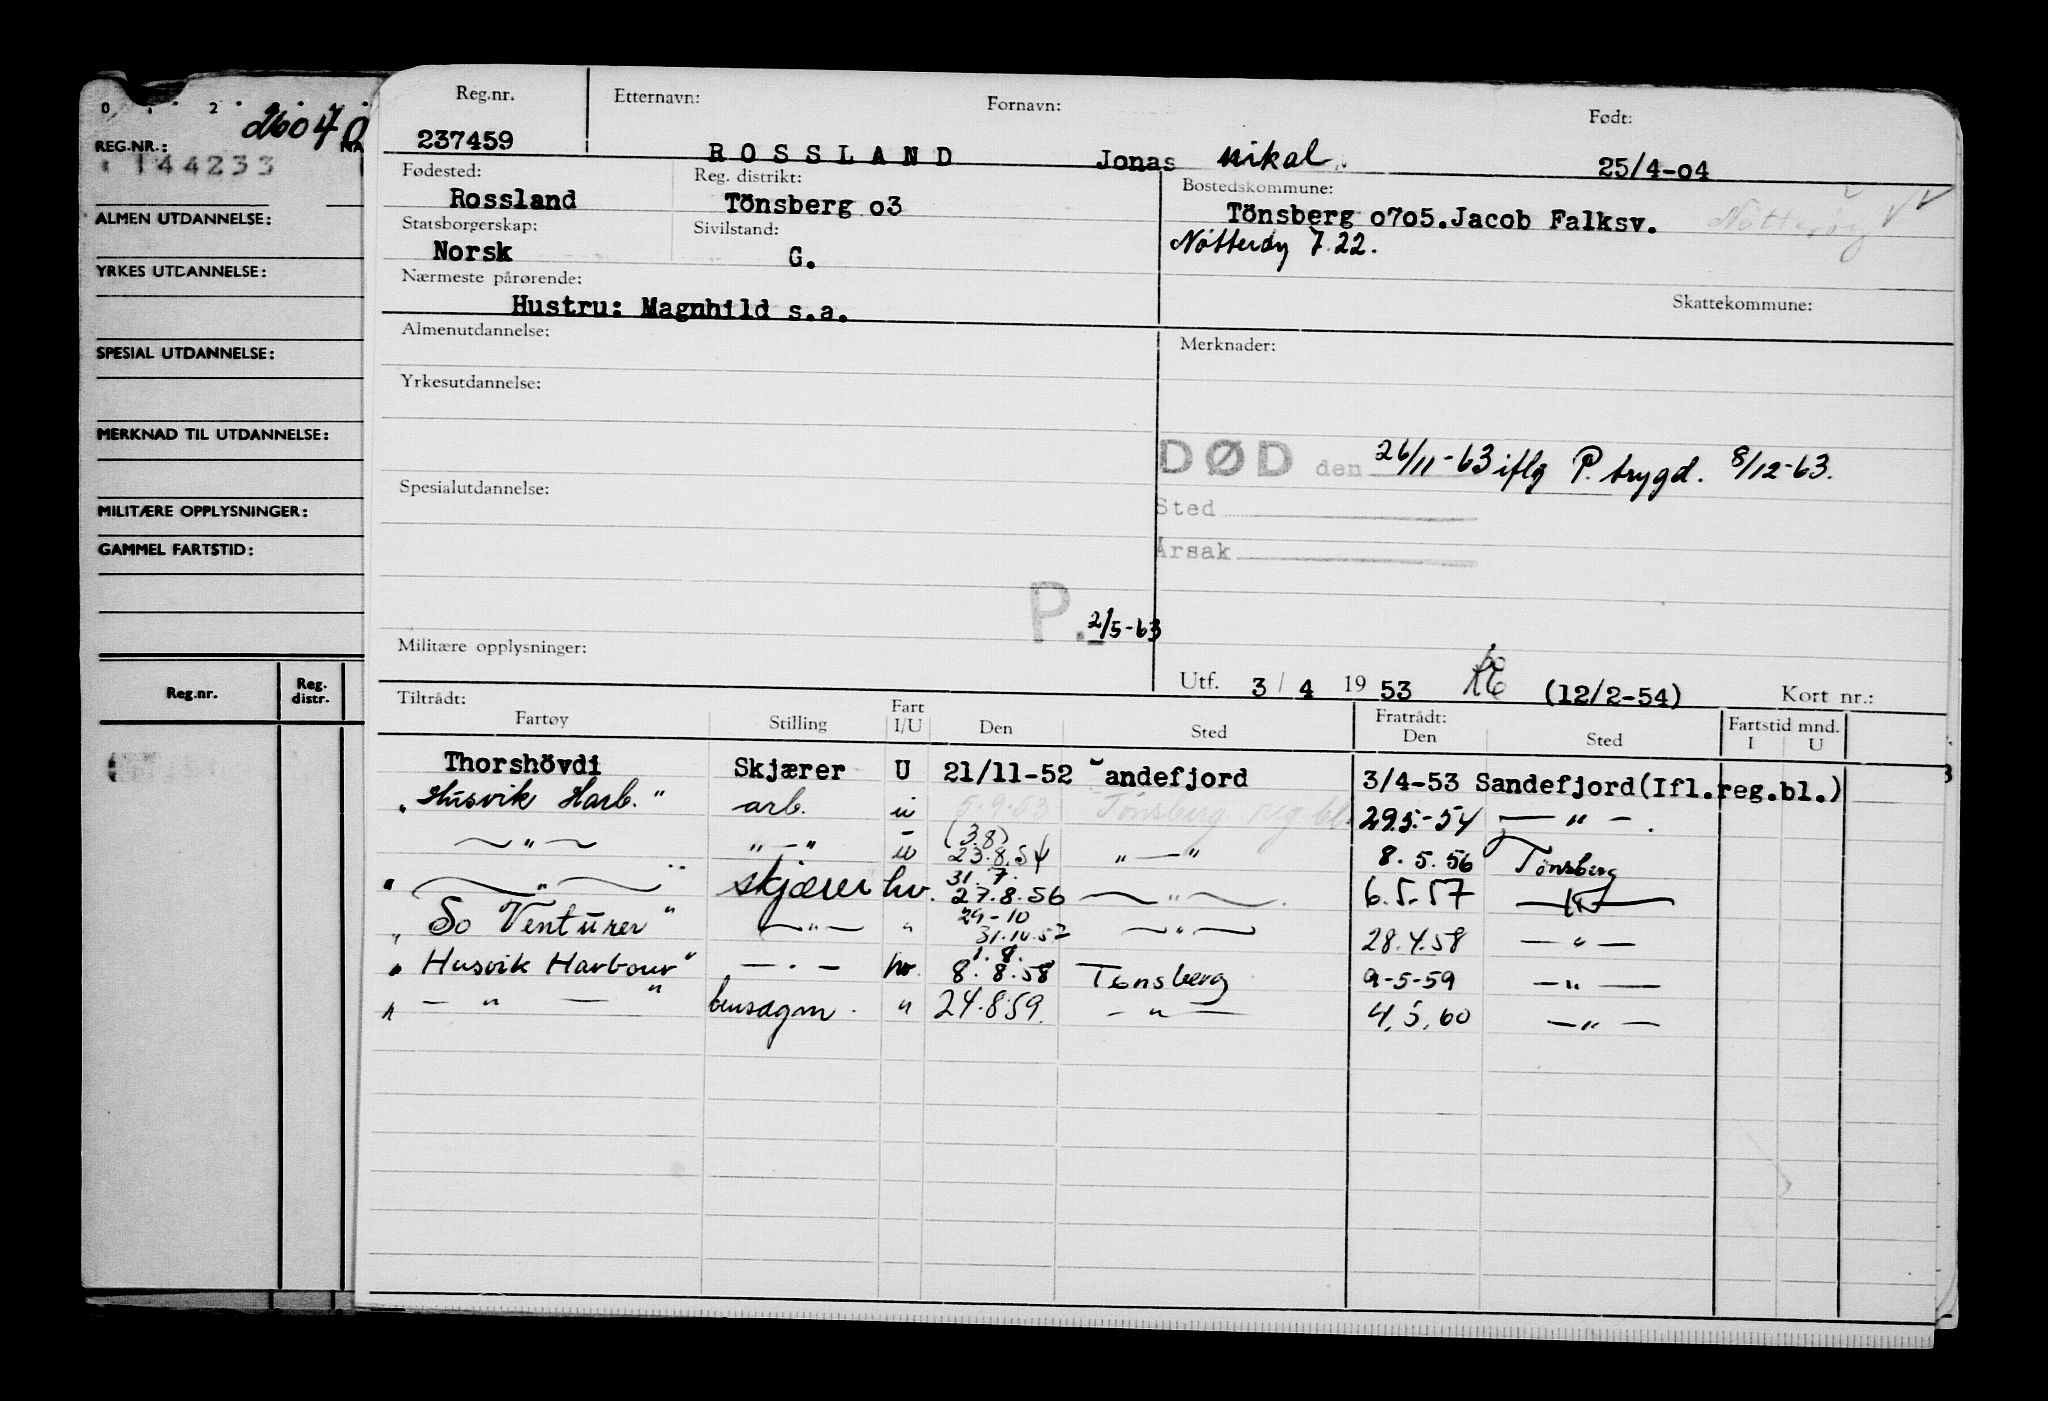 0 1 2
26040
REG.NR.: NA
144233
ALMEN UTDANNELSE:
YRKES UTDANNELSE:
SPESIAL UTDANNELSE:
MERKNAD TIL UTDANNELSE:
MILITÆRE OPPLYSNINGER:
GAMMEL FARTSTID:
Reg.nr. Reg. distr.
Reg.nr. Etternavn: Fornavn: Født:
237459 ROSSLAND Jonas Nikal 25/4-04
Fødested: Reg. distrikt: Bostedskommune:
Rossland Tönsberg o3 Tönsberg o7o5.Jacob Falksv. Nötteröy
Statsborgerskap: Sivilstand:
Norsk G. Nötteröy 722.
Nærmeste pårørende: Skattekommune:
Hustru: Magnhild s.a.
Almenutdannelse: Merknader:
Yrkesutdannelse:
DØD den 26/11-63 iflg P. trygd. 8/12-63.
Spesialutdannelse:
Sted
Årsak
P. 2/5-63
Militære opplysninger:
Utf. 3 / 4 19 53 (12/2-54) Kort nr.:
Tiltrådt: Fratrådt: Fartstid mnd.
Fartøy Stilling Fart I/U Den Sted Den Sted I U
Thorshövdi Skjærer U 21/11-52 andefjord 3/4-53 Sandefjord(Ifl.reg.bl.)
"Husvik Harb." arb. u 5.9.53 Tönsberg reg bl. 29.5.-54 — " — .
— " — " — " u (3.8) 23.8.54 " — " 8.5.56 Tönsberg
" — " — " skjærer hv. 31.7. 27.8.56 — " — . 6.5.57 — " —
" So Venturer " — " — " 29-10 31.10.57 — " — 28.4.58 — " —
" Husvik Harbour" — . — hv. 1.8. 8.8.58 Tönsberg 9-5-59 — " —
" — " — " bensagm. " 24.8.59. — " — 4.5.60 — " —